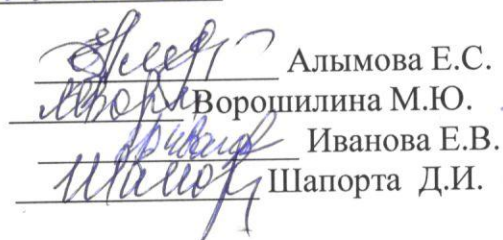 Алымова Е.С.
Ворошилина М.Ю.
Иванова Е.В.
Шапорта Д.И.